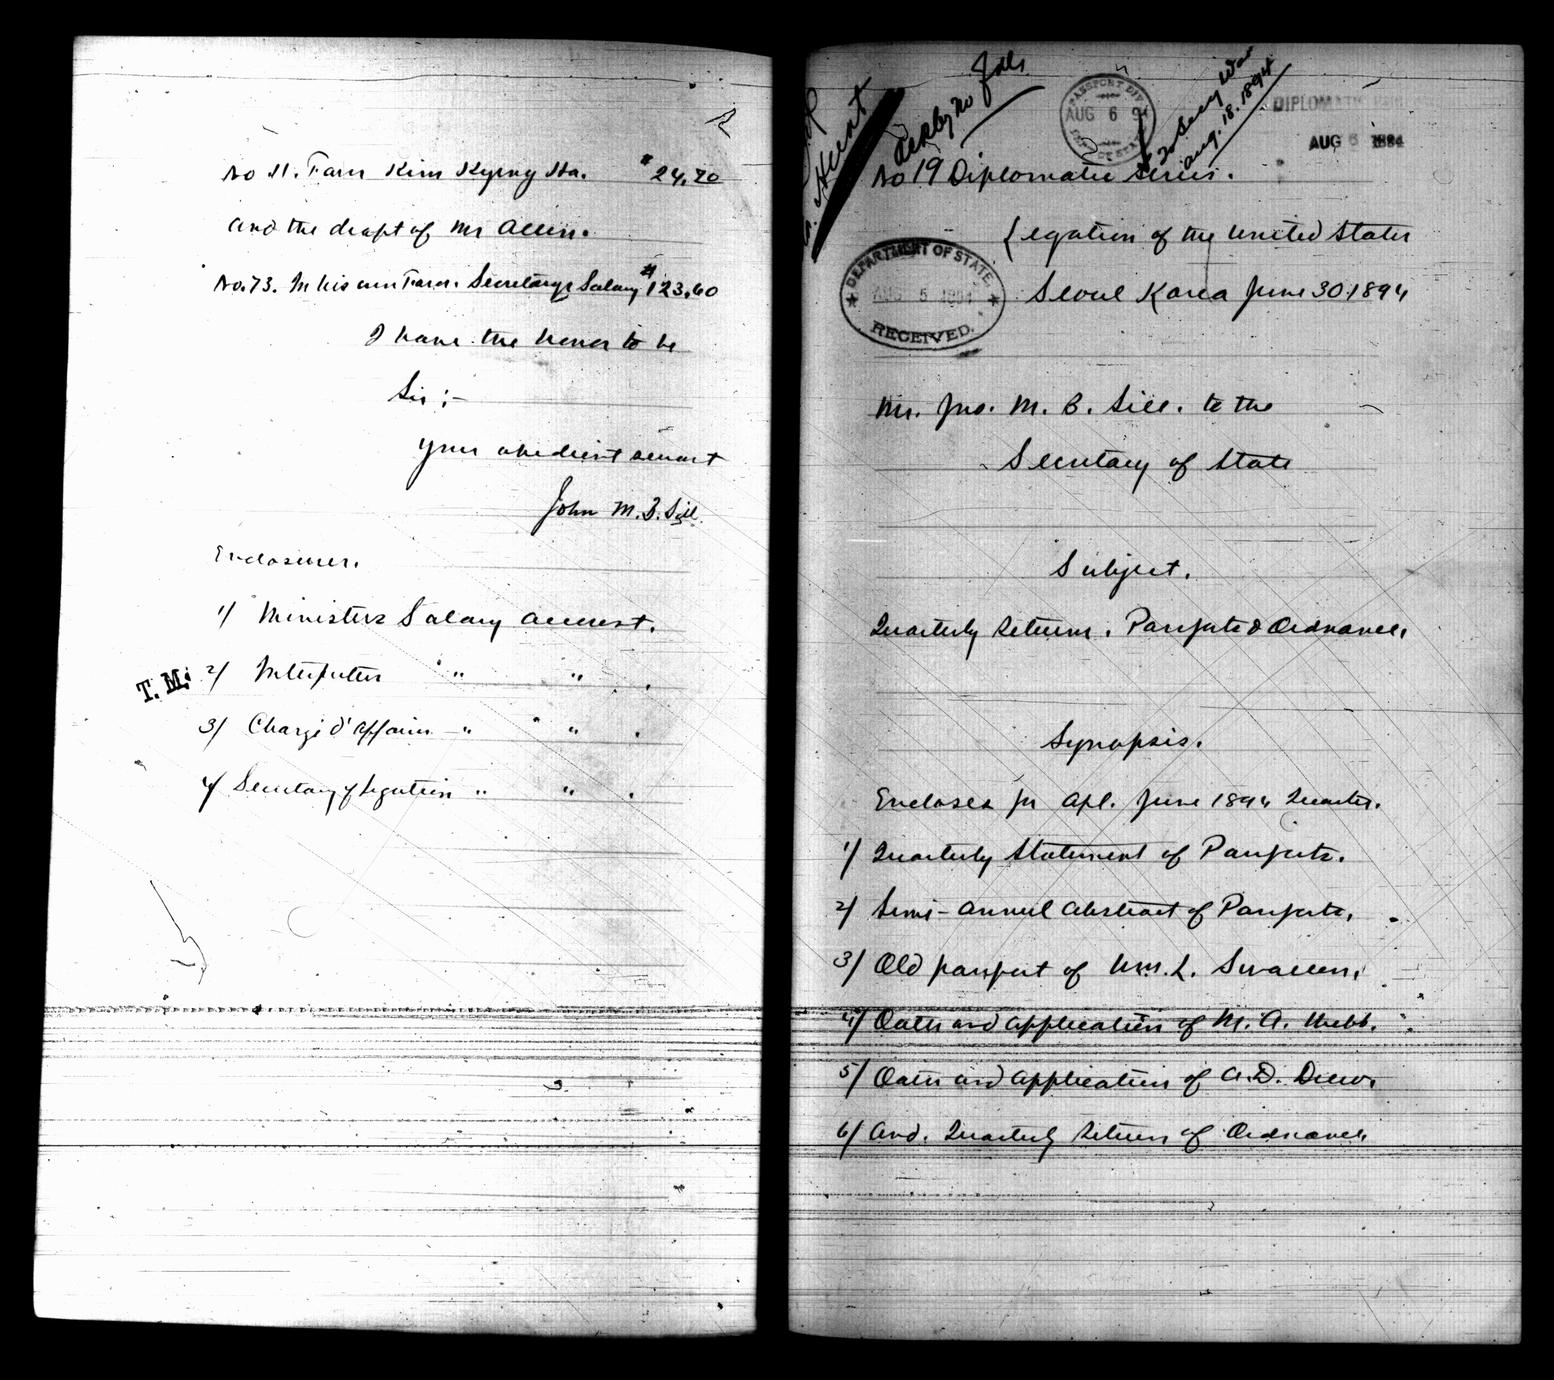 2
No 11. Favr Kim Kyeng Ha. $24.70
and the draft of Mr Allen.
No. 73. In his own Favr. Secretarys Salary $123.60
I have the honor to be
Sir;-
Your obedient servant
John M. B. Sill.
Enclosures.
1/ Ministers Salary account.
T. M. 2/ Interpreters " " .
3/ Chargé d'Affaires " " " .
4/ Secretary of Legation " " .
Mr. Hunt
Ack by No
PASSPORT DIV.
AUG 6 94
DEPT OF STATE
To Secy War
Aug. 18. 1894
DIPLOMATIC
AUG 6 1894
No 19 Diplomatic Series.
Legation of the United States
Seoul Korea June 30 1894
DEPARTMENT OF STATE
AUG 5 1894
RECEIVED.
Mr. Jno. M. B. Sill. to the
Secretary of State
Subject.
Quarterly Returns. Passports & Ordnance.
Synopsis.
Encloses for Apl. June 1894 Quarter.
1/ Quarterly Statement of Passports.
2/ Semi-annual abstract of Passports.
3/ Old passport of Wm. L. Swallen.
4/ Oath and application of M. A. Webb.
5/ Oath and application of A. D. Drew.
6/ And. Quarterly Return of Ordnance.